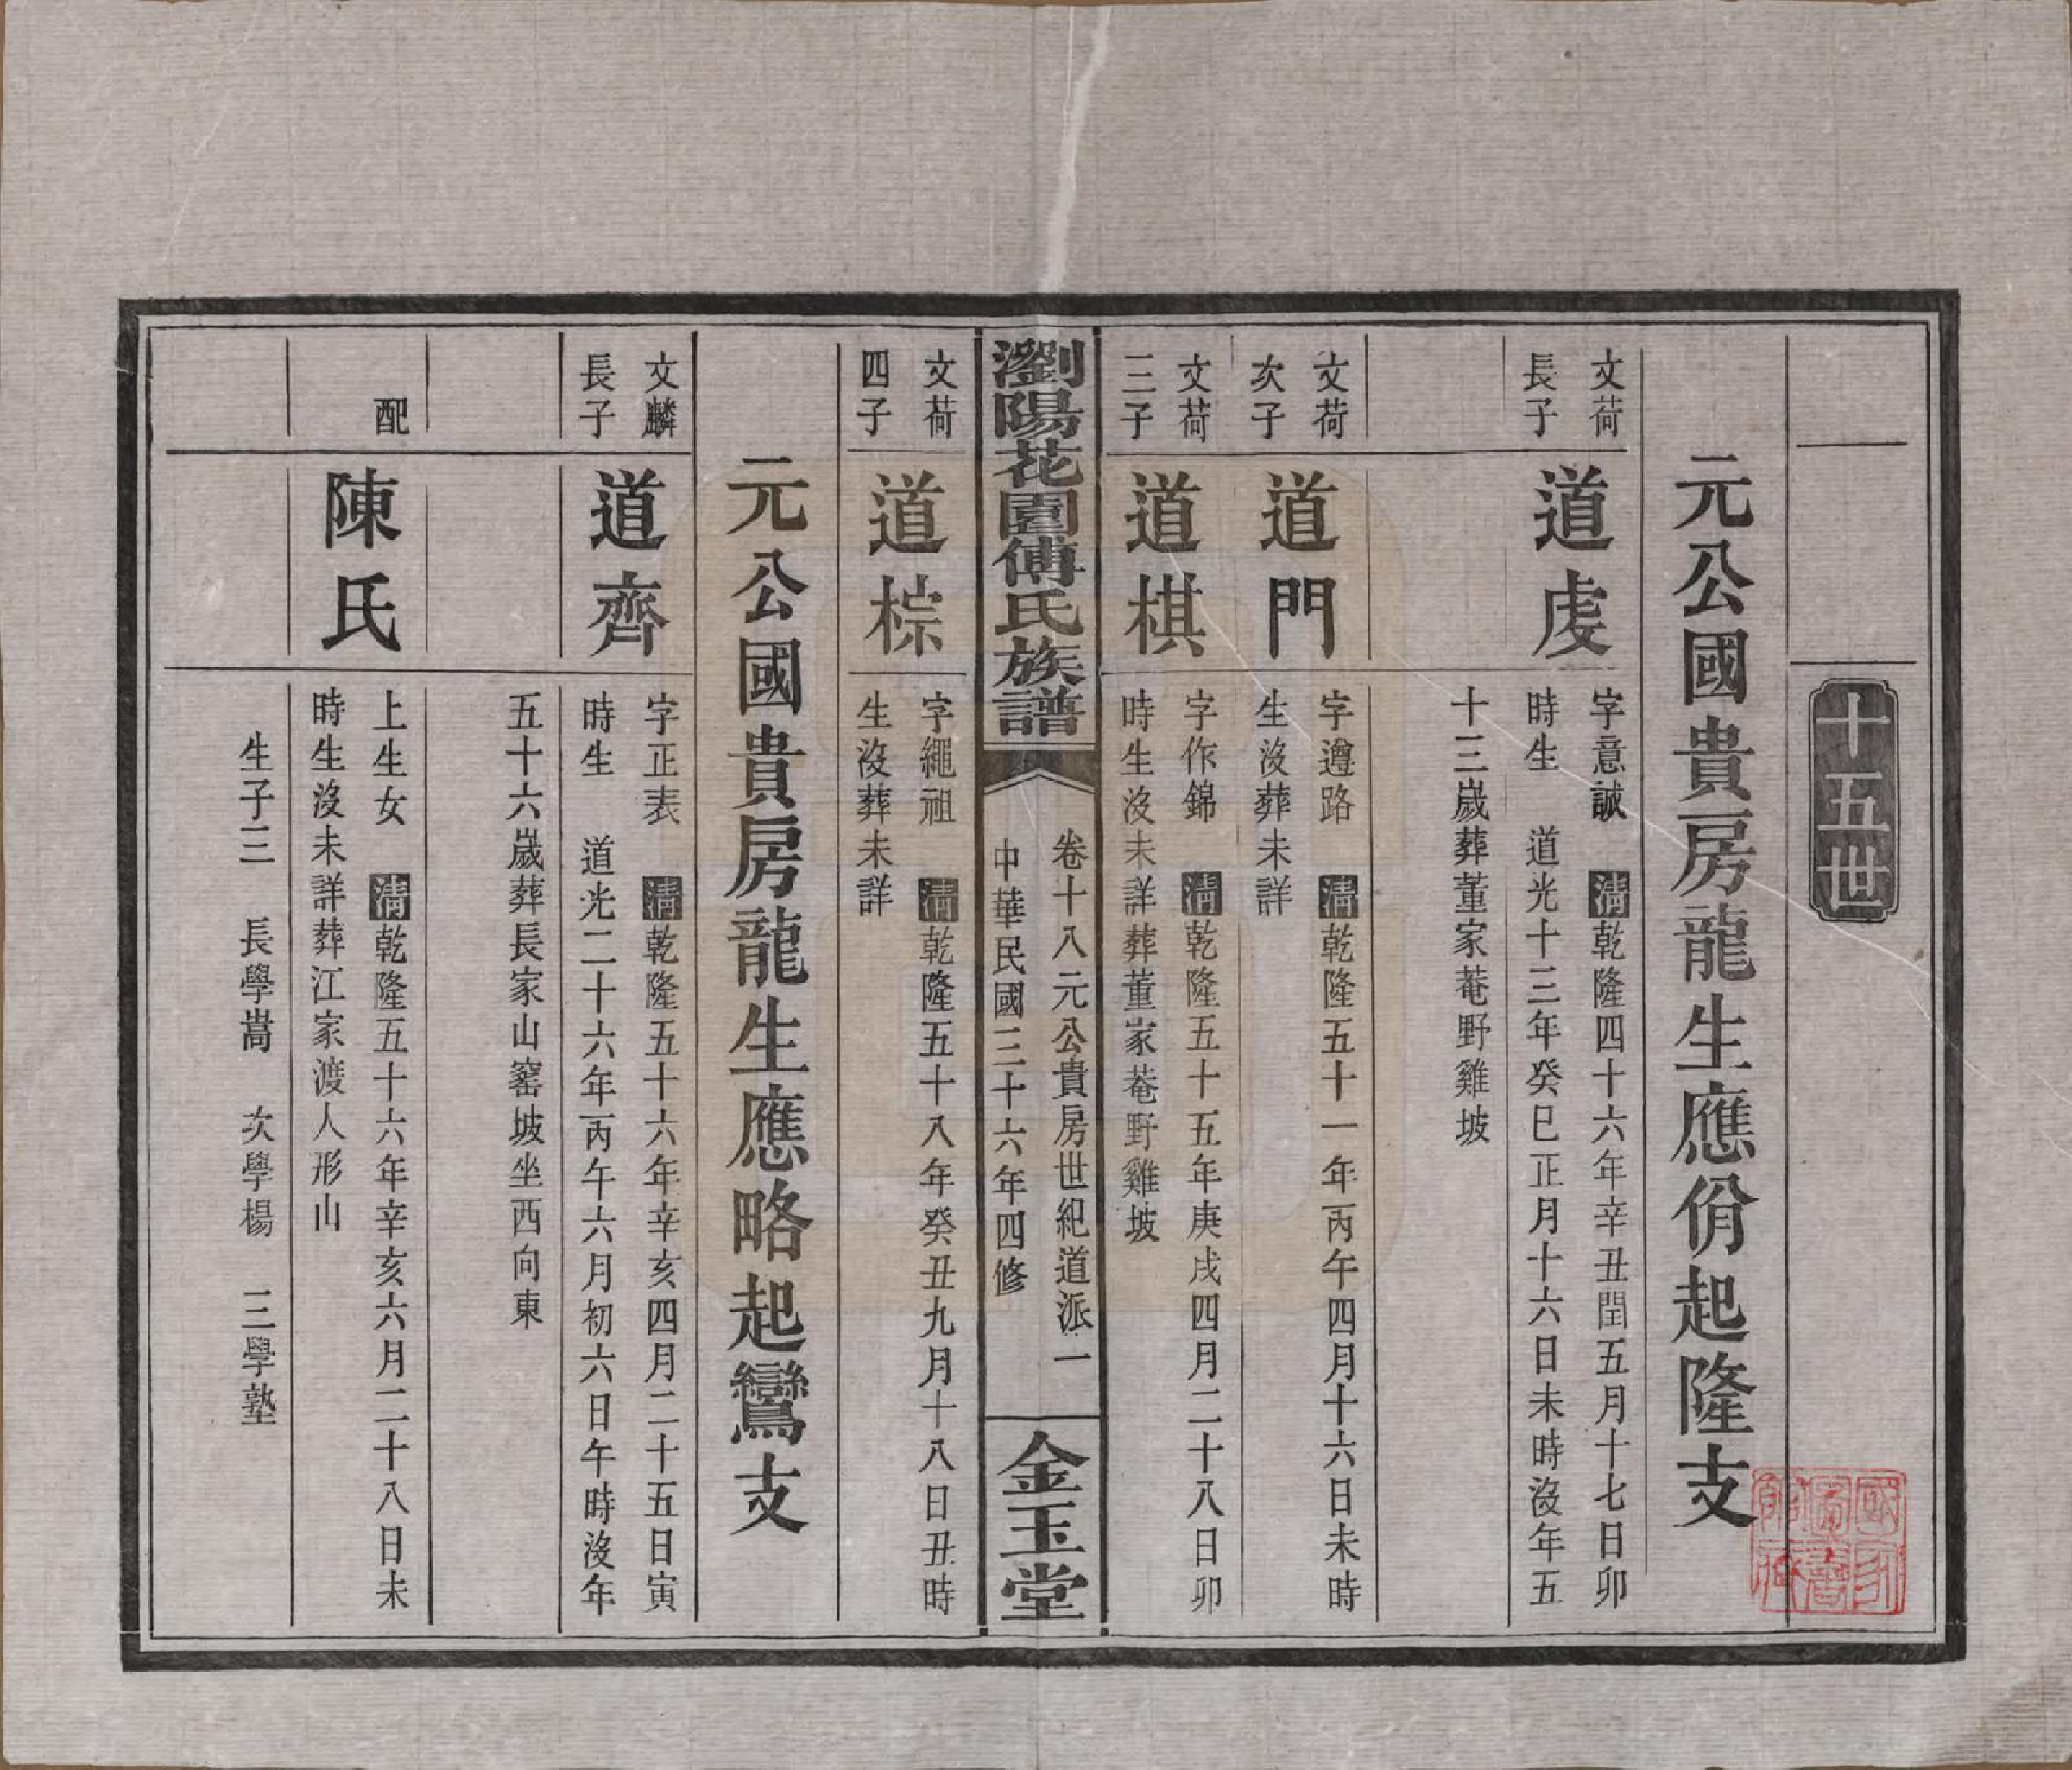 十五世
元公國貴房龍生應佾起隆支
文荷
長子
道虔
字意誠　清乾隆四十六年辛丑閏五月十七日卯
時生　道光十三年癸巳正月十六日未時沒年五
十三歲葬董家菴野雞坡
文荷
次子
道門
字遵路　清乾隆五十一年丙午四月十六日未時
生沒葬未詳
文荷
三子
道棋
字作錦　清乾隆五十五年庚戌四月二十八日卯
時生沒未詳葬董家菴野雞坡
瀏陽花園傅氏族譜
卷十八元公貴房世紀道派一
中華民國三十六年四修
金玉堂
文荷
四子
道棕
字繩祖　清乾隆五十八年癸丑九月十八日丑時
生沒葬未詳
元公國貴房龍生應略起鸞支
文麟
長子
道齊
字正表　清乾隆五十六年辛亥四月二十五日寅
時生　道光二十六年丙午六月初六日午時沒年
五十六歲葬長家山窰坡坐西向東
配
陳氏
上生女　清乾隆五十六年辛亥六月二十八日未
時生沒未詳葬江家渡人形山
生子三　長學嵩　次學楊　三學塾